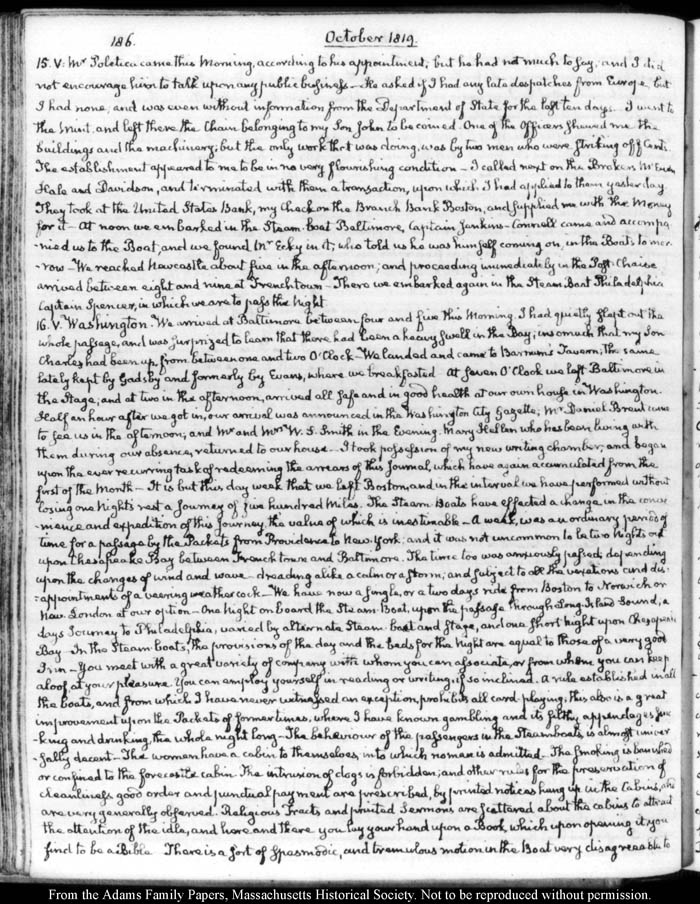 186.
October 1819.
15. V: Mr Poletica came this Morning, according to his appointment; but he had not much to say, and I did
not encourage him to talk upon any public business — He asked if I had any late despatches from Europe, but
I had none, and was even without information from the Department of State for the last ten days. I went to
the Mint, and left there the Chain belonging to my Son John to be coined. One of the Officers shewed me the
buildings and the machinery; but the only work that was doing, was by two men who were striking off Cents.
The establishment appeared to me to be in no very flourishing condition — I called next on the Brokers, McEuen
Hale and Davidson, and terminated with them a transaction, upon which I had applied to them yesterday
They took at the United States Bank, my Check on the Branch Bank Boston, and supplied me with the Money
for it — At noon we embarked in the Steam-Boat Baltimore, Captain Jenkins — Connell came and accompa
-nied us to the Boat; and we found Mr Ecky in it, who told us he was himself coming on, in the Boats to mor-
-row — We reached Newcastle about five in the afternoon; and proceeding immediately in the Post-Chaise
arrived between eight and nine at Frenchtown — There we embarked again in the Steam Boat Philadelphia
Captain Spencer, in which we are to pass the Night
16. V. Washington. We arrived at Baltimore between four and five this Morning. I had quietly slept out the
whole passage, and was surprized to learn that there had been a heavy swell in the Bay; insomuch that my Son
Charles had been up, from between one and two O'Clock — We landed and came to Barnum's Tavern; the same
lately kept by Gadsby and formerly by Evans, where we breakfasted — At seven O'Clock we left Baltimore in
the Stage; and at two in the afternoon, arrived all safe and in good health at our own house in Washington.
Half an hour after we got in, our arrival was announced in the Washington City Gazette; Mr Daniel Brent came
to see us in the afternoon; and Mr and Mrs W. S. Smith in the Evening. Mary Hellen who has been living with
them during our absence, returned to our house — I took possession of my new writing chamber; and began
upon the ever recurring task of redeeming the arrears of this Journal, which have again accumulated from the
first of the Month — It is but this day week that we left Boston, and in the interval we have performed without
losing one Nights rest a Journey of five hundred Miles. The Steam Boats have effected a change in the conve
-nience and expedition of this Journey, the value of which is inestimable — A week, was an ordinary period of
time for a passage by the Packets from Providence to New-York; and it was not uncommon to be two Nights out
upon Chesapeake Bay between Frenchtown and Baltimore. The time too was anxiously passed; depending
upon the changes of wind and wave — dreading alike a calm or a storm; and subject to all the vexations and dis-
-appointments of a veering weathercock — We have now a single, or a two days ride from Boston to Norwich or
New-London at our option — One Night on board the Steam-Boat, upon the passage through Long-Island Sound, a
days Journey to Philadelphia, varied by alternate Steam-boat and Stage, and one short Night upon Chesapeake
Bay — In the Steam-boats, the provisions of the day and the beds for the Night are equal to those of a very good
Inn — You meet with a great variety of company with whom you can associate, or from whom you can keep
aloof at your pleasure. You can employ yourself in reading or writing, if so inclined. A rule established in all
the boats, and from which I have never witnessed an exception, prohibits all card-playing; this also is a great
improvement upon the Packets of former times, where I have known gambling and its filthy appendages smo-
-king and drinking, the whole night long — The behaviour of the passengers in the Steamboats, is almost univer
-sally decent — The women have a cabin to themselves, into which no man is admitted. The smoking is banished
or confined to the forecastle cabin. The intrusion of dogs is forbidden; and other rules for the preservation of
cleanliness, good order and punctual payment are prescribed, by printed notices hung up in the Cabins, and
are very generally observed. Religious Tracts and printed Sermons are scattered about the cabins to attract
the attention of the idle, and here and there you lay your hand upon a Book, which upon opening it you
find to be a Bible. There is a sort of spasmodic, and tremulous motion in the Boat very disagreeable to
From the Adams Family Papers, Massachusetts Historical Society. Not to be reproduced without permission.